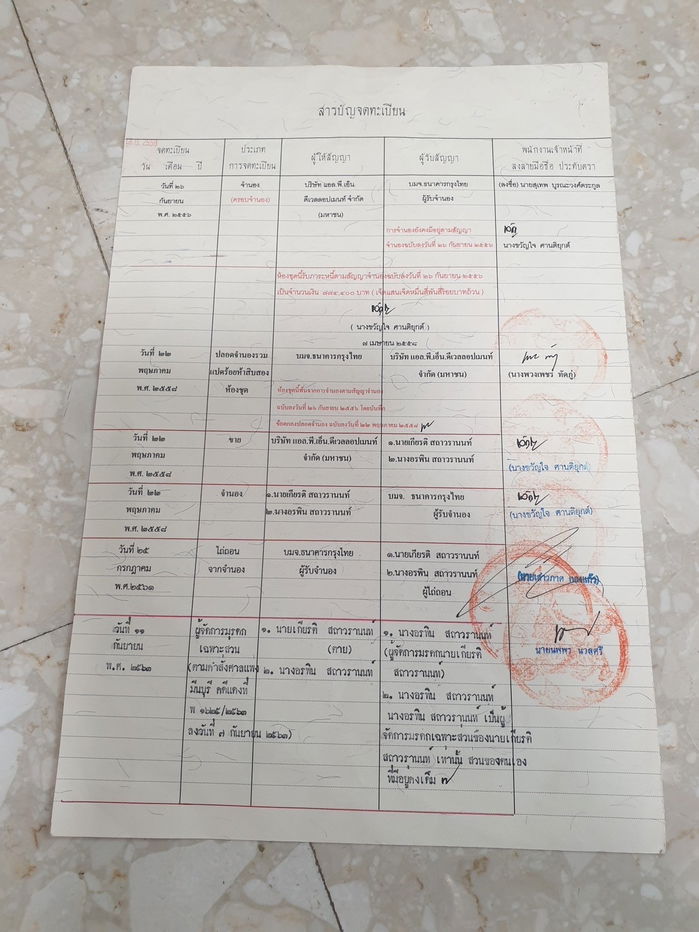 สารบัญจดทะเบียน
จดทะเบียน
วัน เดือน ปี
ประเภท
การจดทะเบียน
ผู้ให้สัญญา
ผู้รับสัญญา
พนักงานเจ้าหน้าที่
ลงลายมือชื่อ ประทับตรา
วันที่ ๒๖
กันยายน
พ.ศ. ๒๕๕๖
จำนอง
(ครอบจำนอง)
บริษัท แอล.พี.เอ็น
ดีเวลลอปเมนท์ จำกัด
(มหาชน)
บมจ.ธนาคารกรุงไทย
ผู้รับจำนอง
การจำนองยังคงมีอยู่ตามสัญญา
จำนองฉบับลงวันที่ ๒๖ กันยายน ๒๕๕๖
(ลงชื่อ) นายสุเทพ บูรณะวงศ์ตระกูล
นางขวัญใจ ศานติยุกต์
ห้องชุดนี้รับภาระหนี้ตามสัญญาจำนองฉบับลงวันที่ ๒๖ กันยายน ๒๕๕๖
เป็นจำนวนเงิน ๘๗๔,๔๐๐ บาท (เจ็ดแสนเจ็ดหมื่นสี่พันสี่ร้อยบาทถ้วน)
( นางขวัญใจ ศานติยุกต์ )
๗ เมษายน ๒๕๕๘
วันที่ ๒๒
พฤษภาคม
พ.ศ. ๒๕๕๘
ปลอดจำนองรวม
แปดร้อยห้าสิบสอง
ห้องชุด
บมจ.ธนาคารกรุงไทย
ห้องชุดนี้พ้นจากการจำนองตามสัญญาจำนอง
ฉบับลงวันที่ ๒๖ กันยายน ๒๕๕๖ โดยบันทึก
ข้อตกลงปลอดจำนอง ฉบับลงวันที่ ๒๒ พฤษภาคม ๒๕๕๘
บริษัท แอล.พี.เอ็น.ดีเวลลอปเมนท์
จำกัด (มหาชน)
(นางพวงเพชร ทัดภู่)
วันที่ ๒๒
พฤษภาคม
พ.ศ. ๒๕๕๘
ขาย
บริษัท แอล.พี.เอ็น.ดีเวลลอปเมนท์
จำกัด (มหาชน)
๑.นายเกียรติ สถาวรานนท์
๒.นางอรพิน สถาวรานนท์
(นางขวัญใจ ศานติยุกต์)
วันที่ ๒๒
พฤษภาคม
พ.ศ. ๒๕๕๘
จำนอง
๑.นายเกียรติ สถาวรานนท์
๒.นางอรพิน สถาวรานนท์
บมจ. ธนาคารกรุงไทย
ผู้รับจำนอง
(นางขวัญใจ ศานติยุกต์)
วันที่ ๒๕
กรกฎาคม
พ.ศ.๒๕๖๑
ไถ่ถอน
จากจำนอง
บมจ.ธนาคารกรุงไทย
ผู้รับจำนอง
๑.นายเกียรติ สถาวรานนท์
๒.นางอรพิน สถาวรานนท์
ผู้ไถ่ถอน
วันที่ ๑๑
กันยายน
พ.ศ. ๒๕๖๓
ผู้จัดการมรดก
เฉพาะส่วน
(ตามคำสั่งศาลแพ่ง
มีนบุรี คดีแดงที่
พ ๑๖๒๕/๒๕๖๓
ลงวันที่ ๗ กันยายน ๒๕๖๓)
๑. นายเกียรติ สถาวรานนท์
(ตาย)
๒. นางอรพิน สถาวรานนท์
๑. นางอรพิน สถาวรานนท์
(ผู้จัดการมรดกนายเกียรติ
สถาวรานนท์)
๒. นางอรพิน สถาวรานนท์
นางอรพิน สถาวรานนท์ เป็นผู้
จัดการมรดกเฉพาะส่วนของนายเกียรติ
สถาวรานนท์ เท่านั้น ส่วนของตนเอง
ที่มีอยู่คงเดิม
นายนพพร นวลศรี